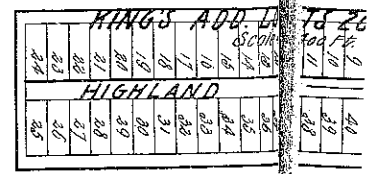 KING'S ADD. LOTS 20
Scale 200 Ft.
24 23 22 21 20 19 18 17 16 15 14 11 10 9
HIGHLAND
25 26 27 28 29 30 31 32 33 34 35 36 38 39 40